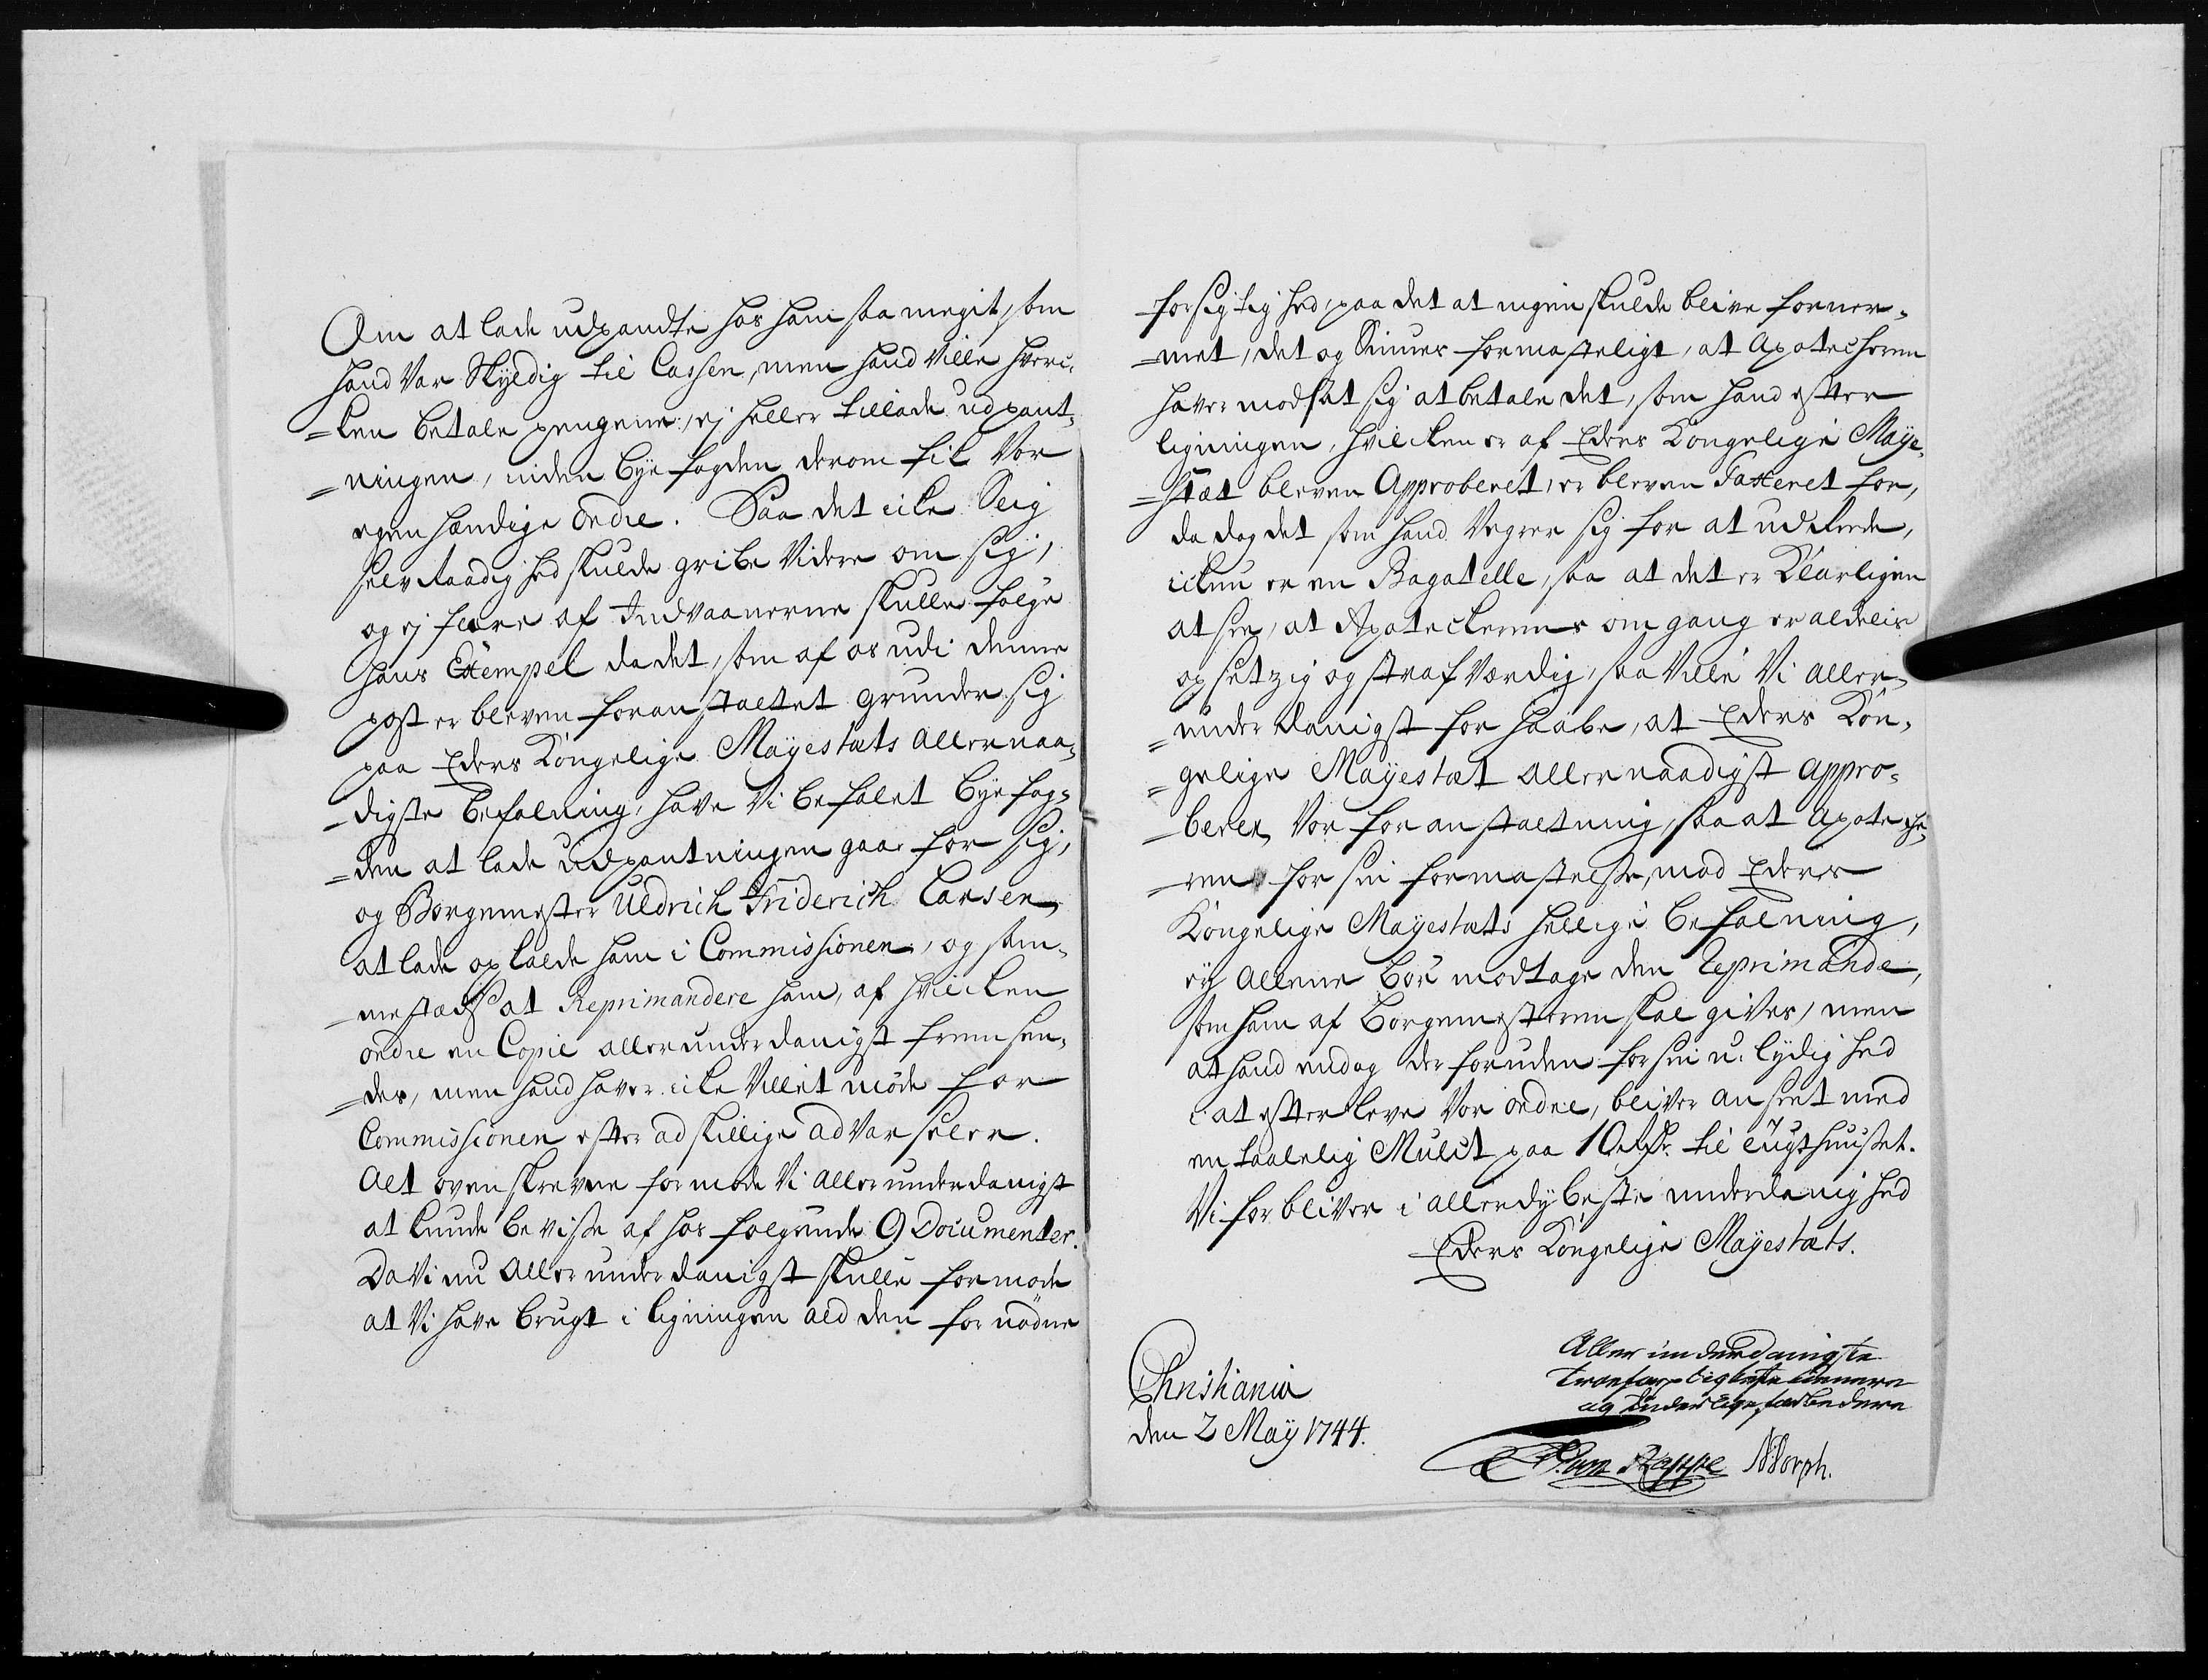 Om at lade udpandte hos ham saa megit, som
hand var Skyldig til Cassen, men hand ville hver¬
=ken betale pengene, ej heller tillade udpant¬
=ningen, inden byefogden derom fik vor
egenhændige ordre. Paa det icke Slig
selvraadighed skulde gribe videre om sig,
og ej fleere af Indvaanerne skulle følge
hans Exempel da det, som af os udi denne
post er bleven foranstaltet grunder sig
paa Eders Kongelige Mayestæts allernaa¬
=digste befalning, have Vi befalet byefog¬
=den at lade udpantningen gaae for sig,
og Borgemester Uldrich Friderich Carsen,
at lade opkalde ham i Commissionen, og sam¬
=mestæds at Reprimandere ham, af hvilcken
ordre en Copie allerunderdanigst fremsen¬
=des, men hand haver icke villet møde for
Commissionen efter adskillige advarseler.
Alt ovenskrevne formode Vi allerunderdanigst
at kunde bevise af hosfølgende 9 Documenter.
Da Vi nu allerunderdanigst skulle formode
at Vi have brugt i ligningen ald den fornødne
forsigtighed, paa det at ingen skulde blive forner¬
=met, det og Sinnes formasteligt, at Apotecheren
haver modsat sig at betale det, som hand efter
ligningen, hvilcken er af Eders Kongelige Maye¬
=stæt bleven Approberet, er bleven Taxeret for,
da dog det som hand vegrer sig for at udreede,
ickun er en Bagatelle, saa at det er Klarligen
at see, at Apoteckerens omgang er aldeles
opsetzig og strafværdig, saa ville Vi aller¬
=underdanigst forhaabe, at Eders Kon¬
=gelige Mayestæt allernaadigst appro¬
=berer vor foranstaltning, saa at Apoteche¬
=ren for sin formastelse, mod Eders
Kongelige Mayestæts hellige befalning,
ey allene bør modtage den Reprimande,
som ham af Borgemesteren skal gives, men
at hand endog derforuden for sin u-lydighed
at efterleve vor ordre, bliver anseet med
en taalelig Mulct paa 10 Rdr. til tugthuuset.
Vi forbliver i allerdybeste underdanighed
Eders Kongelige Mayestæts.
Christiania
den 2 May 1744.
Aller underdanigste
troepligtigste tienere
og inderlige forbedere
von Rappe NDorph.